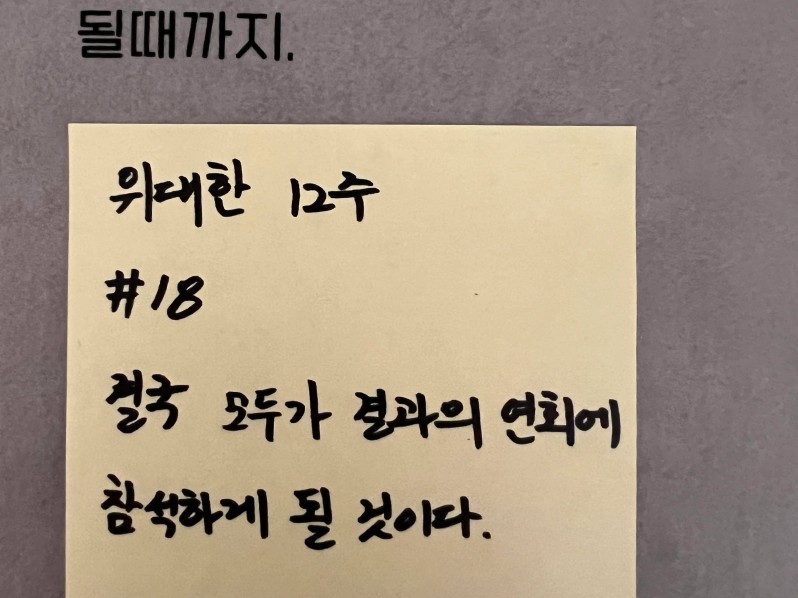 될때까지.
위대한 12주
#18
결국 모두가 결과의 연회에
참석하게 될 것이다.